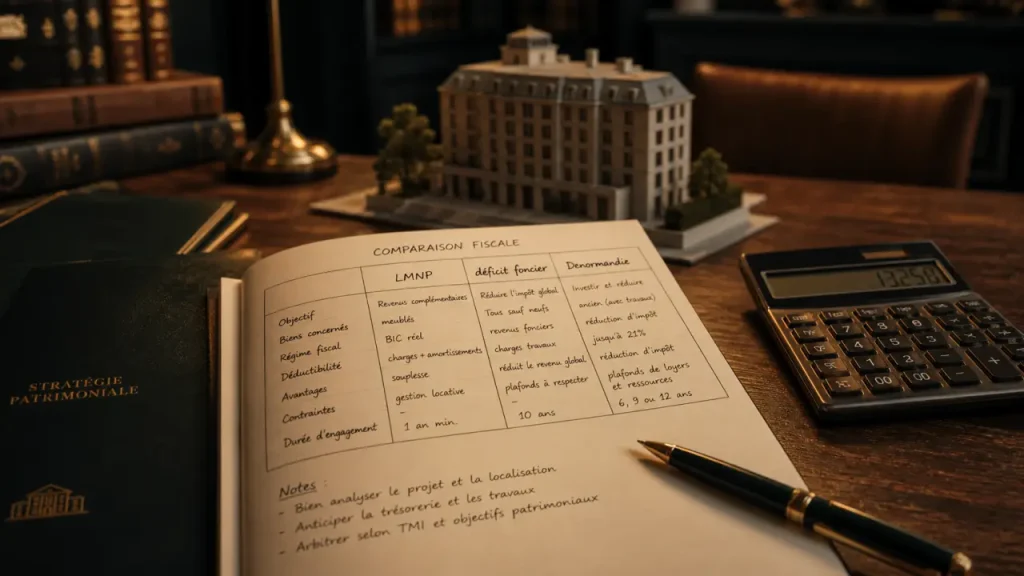 STRATÉGIE
PATRIMONIALE
COMPARAISON FISCALE
LMNP déficit foncier Denormandie
Objectif Revenus complémentaires Réduire l'impôt global Investir et réduire
Biens concernés meublés Tous sauf neufs ancien (avec travaux)
Régime fiscal BIC réel revenus fonciers réduction d'impôt
Déductibilité charges + amortissements charges travaux jusqu'à 21%
Avantages souplesse réduit le revenu global réduction d'impôt
Contraintes gestion locative plafonds à respecter plafonds de loyers
et ressources
– –
Durée d'engagement 1 an min. 10 ans 6, 9 ou 12 ans
Notes :
- Bien analyser le projet et la localisation
- Anticiper la trésorerie et les travaux
- Arbitrer selon TMI et objectifs patrimoniaux